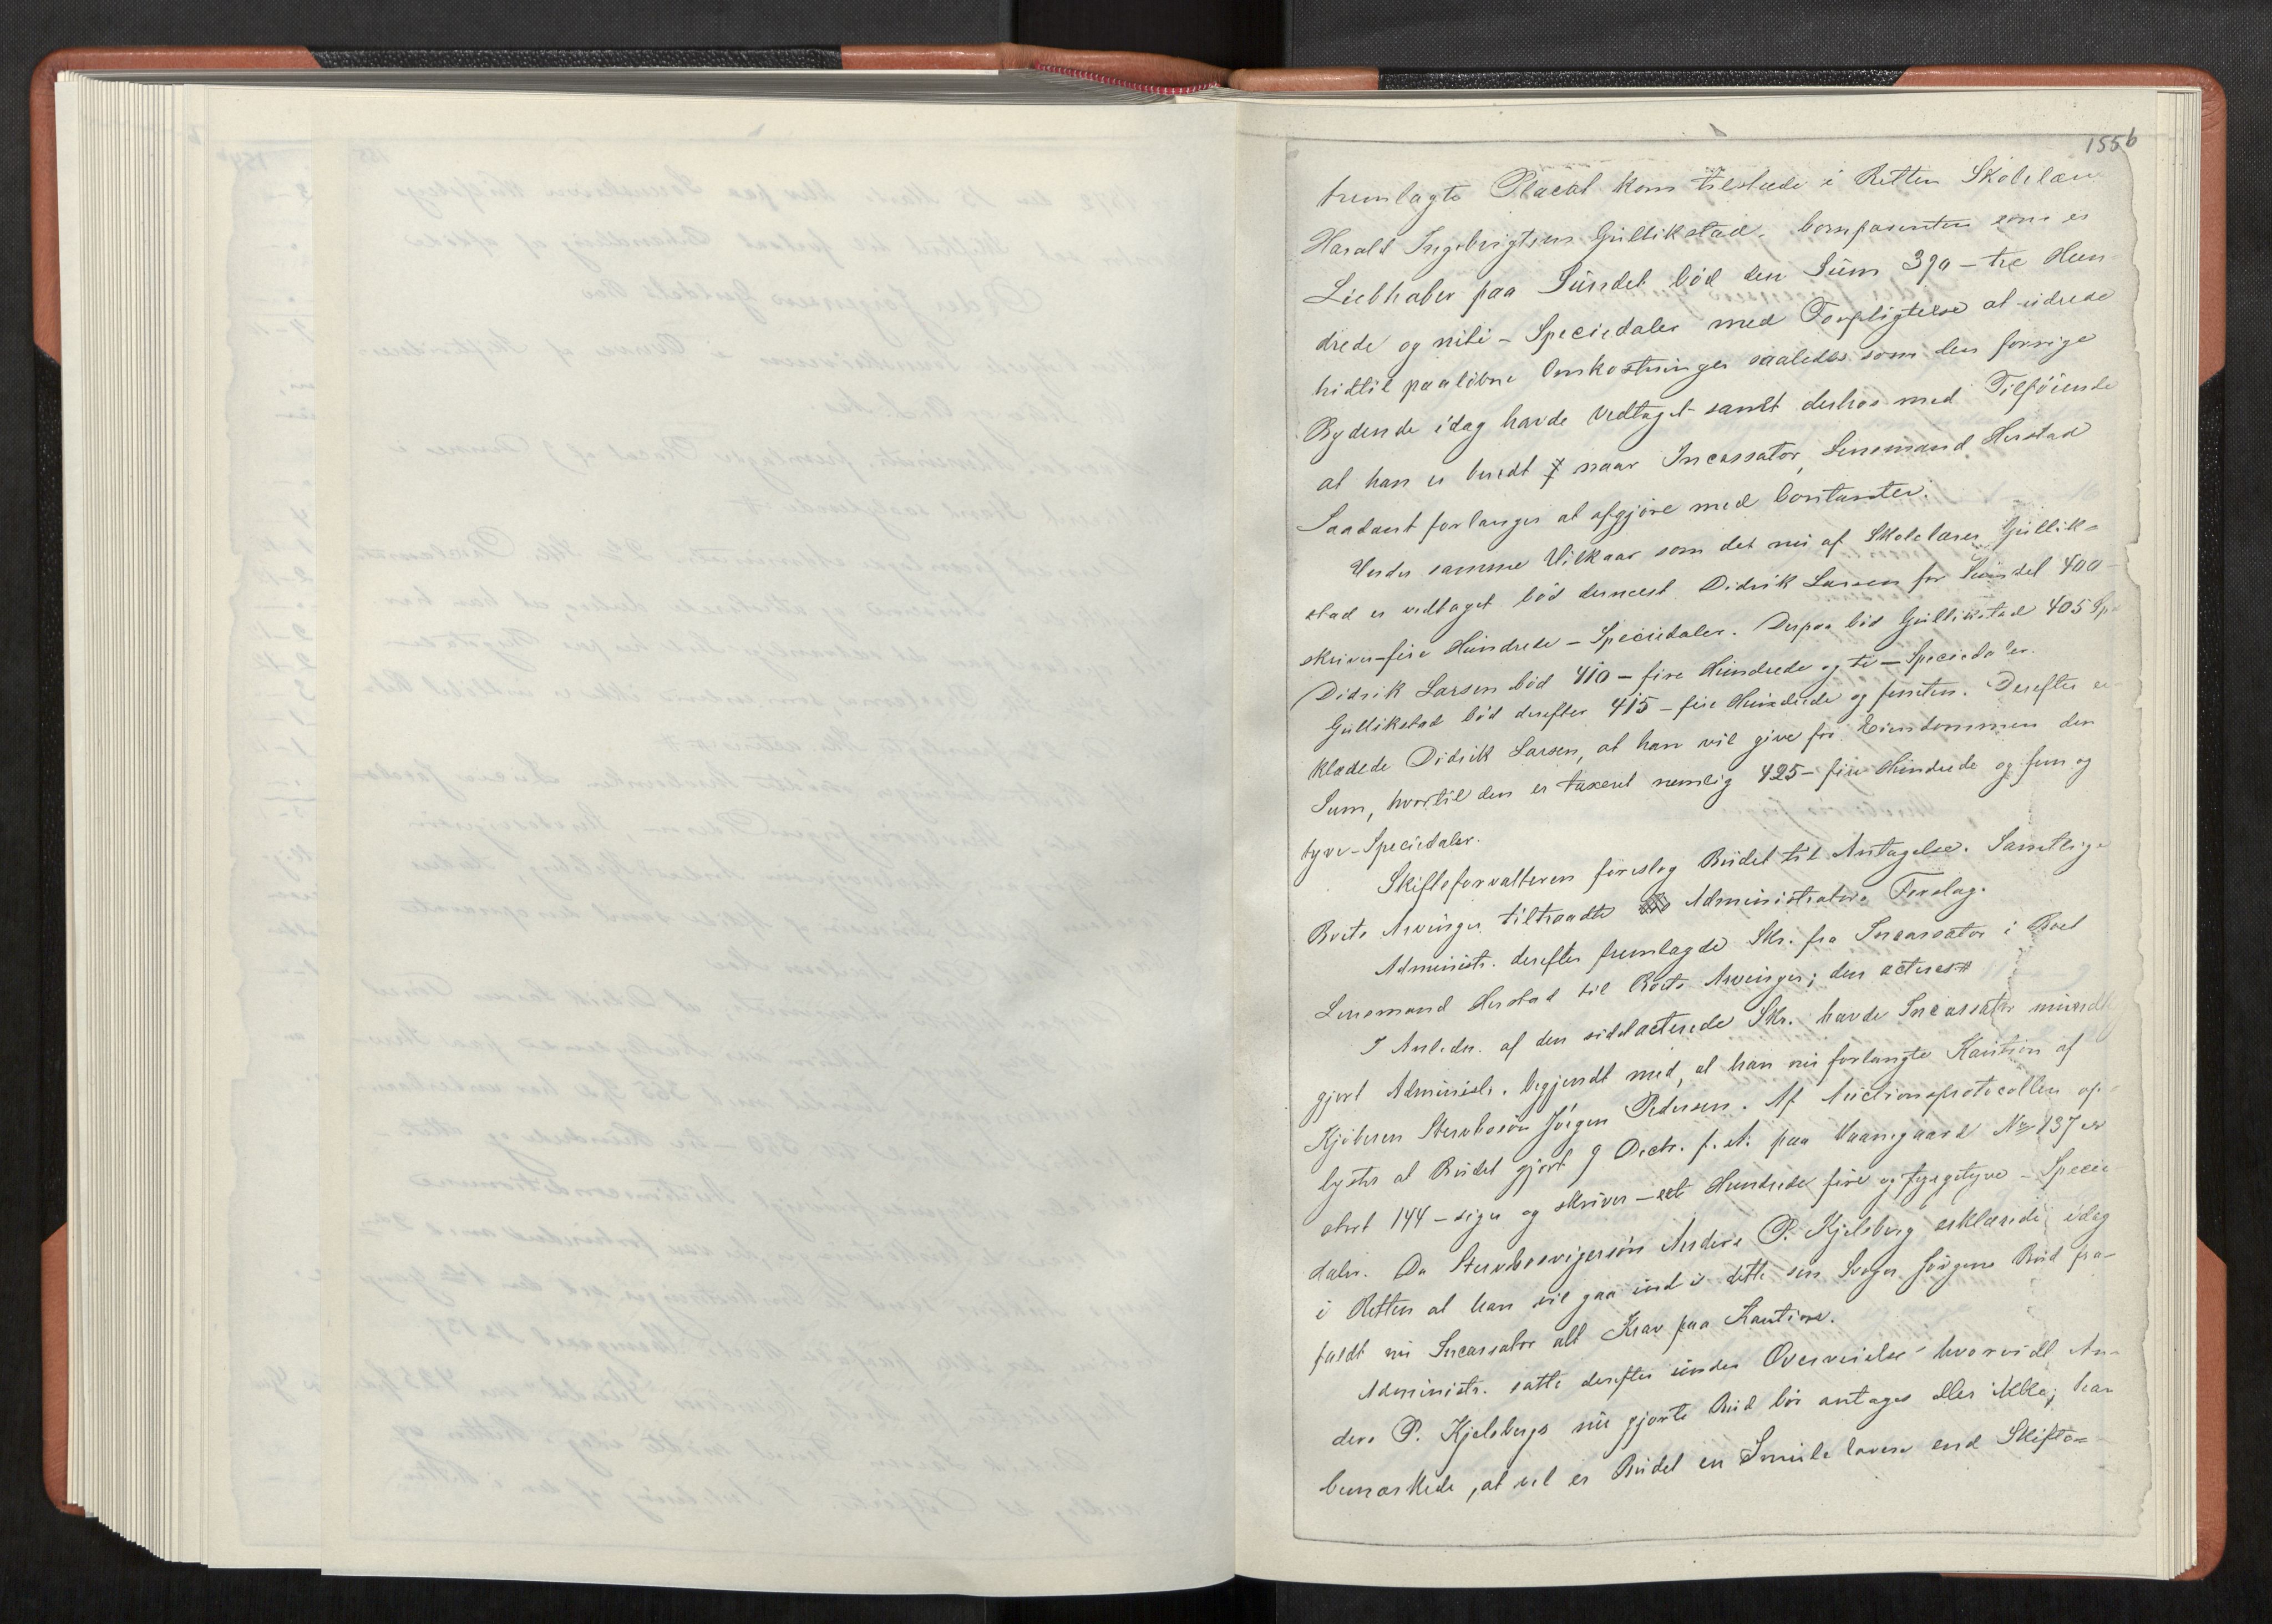 155b
fremlagte Placat kom tilstæde i Retten Skolelær
Harald Ingebrigtsen Gullikstad. Comparenten som er
Liebhaber paa Sundet bød den Sum 390 – tre Hun
drede og niti – Speciedaler med Forpligtelse at udrede
hidtil paaløbne Omkostninger saaledes som den forrige
Bydende idag havde vedtaget samt derhos med Tilføiende
at han er beredt naar Incassator, Lensmand Herstad
Saadant forlanger at afgjøre med Contanter.
Under samme Vilkaar som det nu af Skolelærer Gullik=
stad er vedtaget bød dernæst Didrik Larsen for Sundet 400 –
skriver – fire Hundrede – Speciedaler. Derpaa bød Gullikstad 405 Sp
Didrik Larsen bød 410 – fire Hundrede og ti – Speciedaler.
Gullikstad bød derefter 415 – fire Hundrede og femten. Derefter er
klærede Didrik Larsen, at han vil give for Eiendommen den
Sum, hvortil den er taxeret nemlig 425 – fire Hundrede og fem og
tyve – Speciedaler.
Skifteforvalteren foreslog Budet til Antagelse. Samtlige
Boets Arvinger tiltraadte Administrators Forslag.
Administr. derefter fremlagde Skr. fra Incassator i Boet
Lensmand Herstad til Boets Arvinger; den acteres #
I Anledn. af den sidstacterede Skr. havde Incassator mundtl
gjort Administr. begjendt med, at han nu forlangte Kaution af
Kjøberen Stervbosøn Jørgen Pedersen. Af Auctionsprotocollen op=
lystes at Budet gjort 9 Decbr. f. A. paa Vaaningaard No 137 er
stort 144 – siger og skriver – eet Hundrede fire og fyrgetyve – Specie
daler. Da Stervbosvigersøn Anders P. Kjelsberg erklærede idag
i Retten at han vil gaa ind i dette sin Svoger Jørgens Bud fra=
faldt nu Incassator alt Krav paa Kaution.
Administr. satte derefter under Overveielse hvorvidt An=
ders P. Kjelsbergs nu gjorte Bud bør antages eller ikke; han
bemærkede, at vel er Budet en Smule lavere end Skifte=